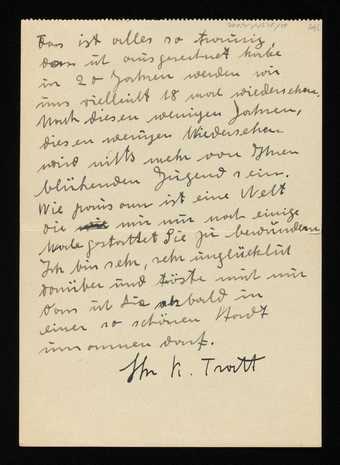 Das ist alles so traurig,
dass ich ausgerechnet habe
in 20 Jahren werden wir
uns vielleicht 18 mal wiedersehen.
Nach diesen wenigen Jahren,
diesen wenigen Wiedersehen
wird nichts mehr von Ihrer
blühenden Jugend sein.
Wie grausam ist eine Welt
die mir nur noch einige
Male gestattet Sie zu bewundern
Ich bin sehr, sehr unglücklich
darüber und tröste mich nur
dass ich Sie bald in
einer so schönen Stadt
umarmen darf.
Ihr K. Tratt